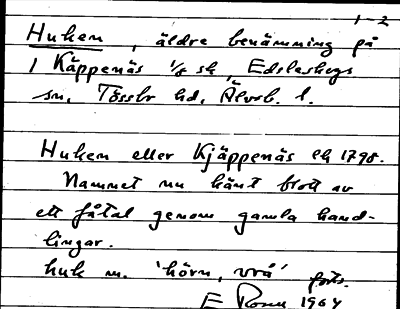 1-2
Huken, äldre benämning på
1 Käppenäs 1/8 sk, Edsleskogs
sn, Tössbo hd, Älvsb. l.
Huken eller Kjäppenäs ek 1798.
Namnet nu känt blott av
ett fåtal genom gamla hand-
lingar.
huk m. 'hörn, vrå' forts.
E 1964